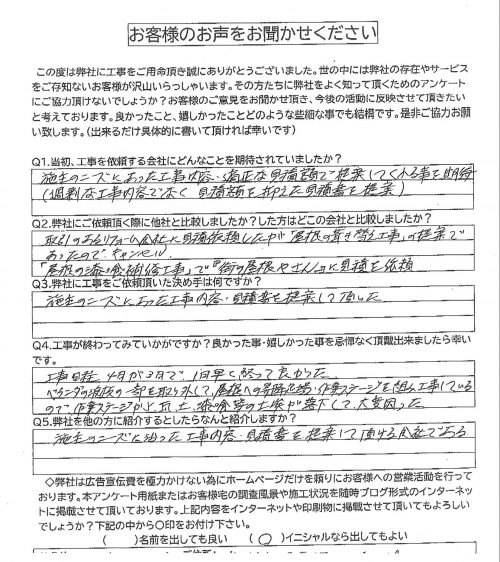 お客様のお声をお聞かせください
この度は弊社に工事をご用命頂き誠にありがとうございました。世の中には弊社の存在やサービス
をご存知ないお客様が沢山いらっしゃいます。その方たちに弊社をよく知って頂くためのアンケート
にご協力頂けないでしょうか？お客様のご意見をお聞かせ頂き、今後の活動に反映させて頂きたい
と考えております。良かったこと、嬉しかったことどのような些細な事でも結構です。是非ご協力お願
い致します。（出来るだけ具体的に書いて頂ければ幸いです）
Q1.当初、工事を依頼する会社にどんなことを期待されていましたか？
施主のニーズにあった工事内容・適正な見積額で提案してくれる事を期待
(過剰な工事内容でなく 見積額を抑えた見積書を提案)
Q2.弊社にご依頼頂く際に他社と比較しましたか？した方はどこの会社と比較しましたか？
取引のあるリフォーム会社に見積依頼したが「屋根の葺き替え工事」の提案で
あったので、キャンセル
「屋根の漆喰補修工事」で『街の屋根やさん』に見積を依頼
Q3.弊社に工事をご依頼頂いた決め手は何ですか？
施主のニーズにあった工事内容・見積書を提案して頂いた
Q4.工事が終わってみていかがですか？良かった事・嬉しかった事を忌憚なく頂戴出来ましたら幸い
です。
工事日程、4日が3日で 1日早く終って良かった
ベランダの波板の一部を取り外して、屋根への昇降足場・作業ステージを組み工事している
ので、作業ステージから、瓦、土、漆喰等の土埃が落下して、大変困った
Q5.弊社を他の方に紹介するとしたらなんと紹介しますか？
施主のニーズと沿った工事内容・見積書を提案して頂ける会社である
◇弊社は広告宣伝費を極力かけない為にホームページだけを頼りにお客様への営業活動を行って
おります。本アンケート用紙またはお客様宅の調査風景や施工状況を随時ブログ形式のインターネッ
トに掲載させて頂いております。上記内容をインターネットや印刷物に掲載させて頂いてもよろしい
でしょうか？下記の中から〇印をお付け下さい。
(　　)名前を出しても良い　(〇)イニシャルなら出してもよい